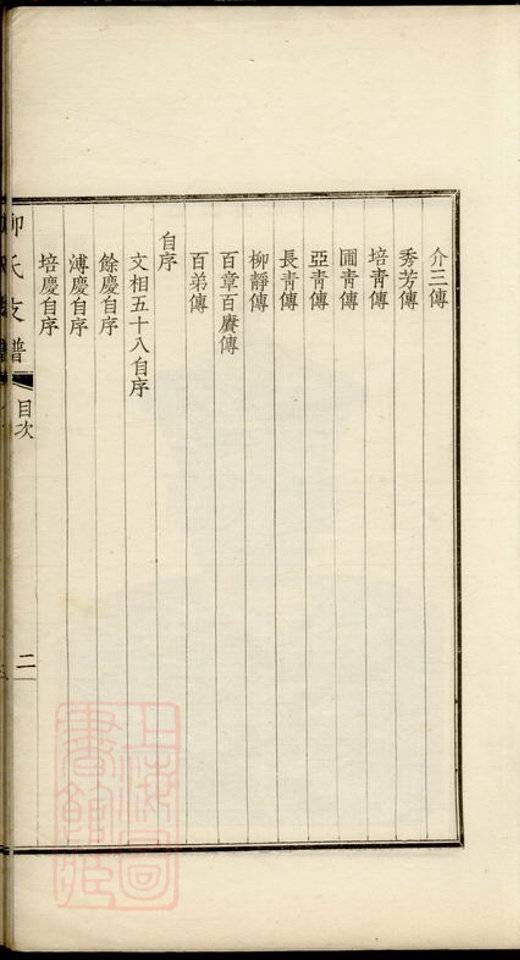 介三傳
秀芳傳
培靑傳
圃靑傳
亞靑傳
長靑傳
柳靜傳
百章百賡傳
百弟傳
自序
文相五十八自序
餘慶自序
溥慶自序
培慶自序
柳氏支譜
目次
二
上海圖書館藏